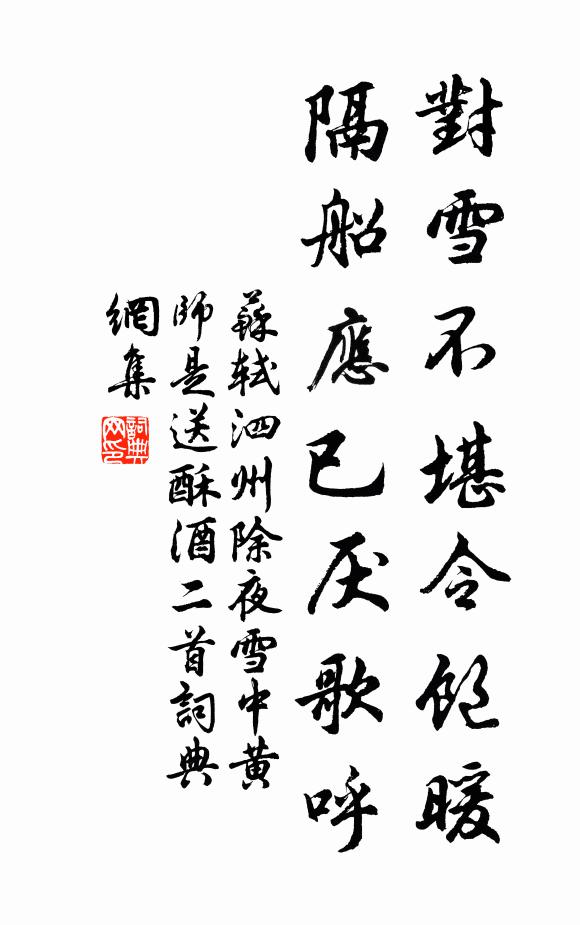 對雪不堪令飽暖
隔船應已厌歌呼
蘇軾泗州除夜雪中黄
師是送酥酒二首詞典
網集
詞典网印